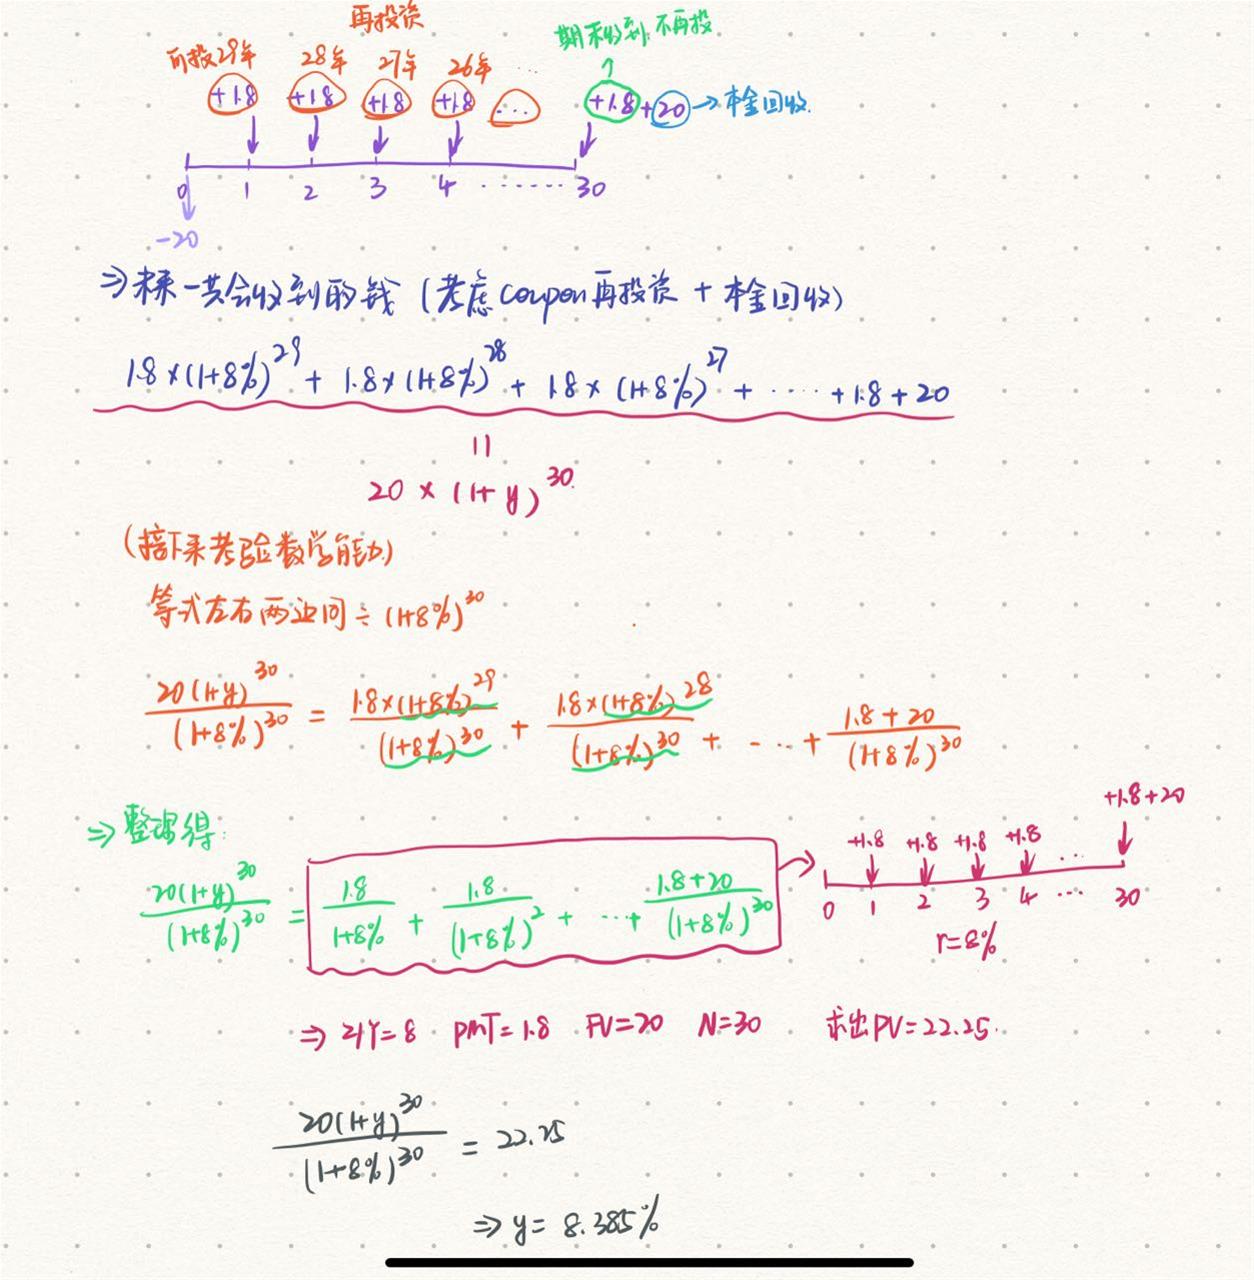 再投资
期末收到 不再投
可投29年 28年 27年 26年 ...
+1.8 +1.8 +1.8 +1.8 ... +1.8+20 → 本金回收.
0 1 2 3 4 ....... 30
-20
⇒ 未来一共会收到的钱 (考虑 coupon 再投资 + 本金回收)
1.8×(1+8%)^29 + 1.8×(1+8%)^28 + 1.8×(1+8%)^27 + ..... +1.8+20
||
20×(1+y)^30
(接下来考验数学能力)
等式左右两边同÷(1+8%)^30
20(1+y)^30/(1+8%)^30 = 1.8×(1+8%)^29/(1+8%)^30 + 1.8×(1+8%)^28/(1+8%)^30 + ...+ 1.8+20/(1+8%)^30
⇒ 整理得:
20(1+y)^30/(1+8%)^30 = 1.8/1+8% + 1.8/(1+8%)^2 + ...+ 1.8+20/(1+8%)^30
+1.8 +1.8 +1.8 +1.8 ... +1.8+20
0 1 2 3 4 ... 30
r=8%
⇒ I/Y=8 PMT=1.8 FV=20 N=30 求出PV=22.25.
20(1+y)^30/(1+8%)^30 = 22.25
⇒ y= 8.385%